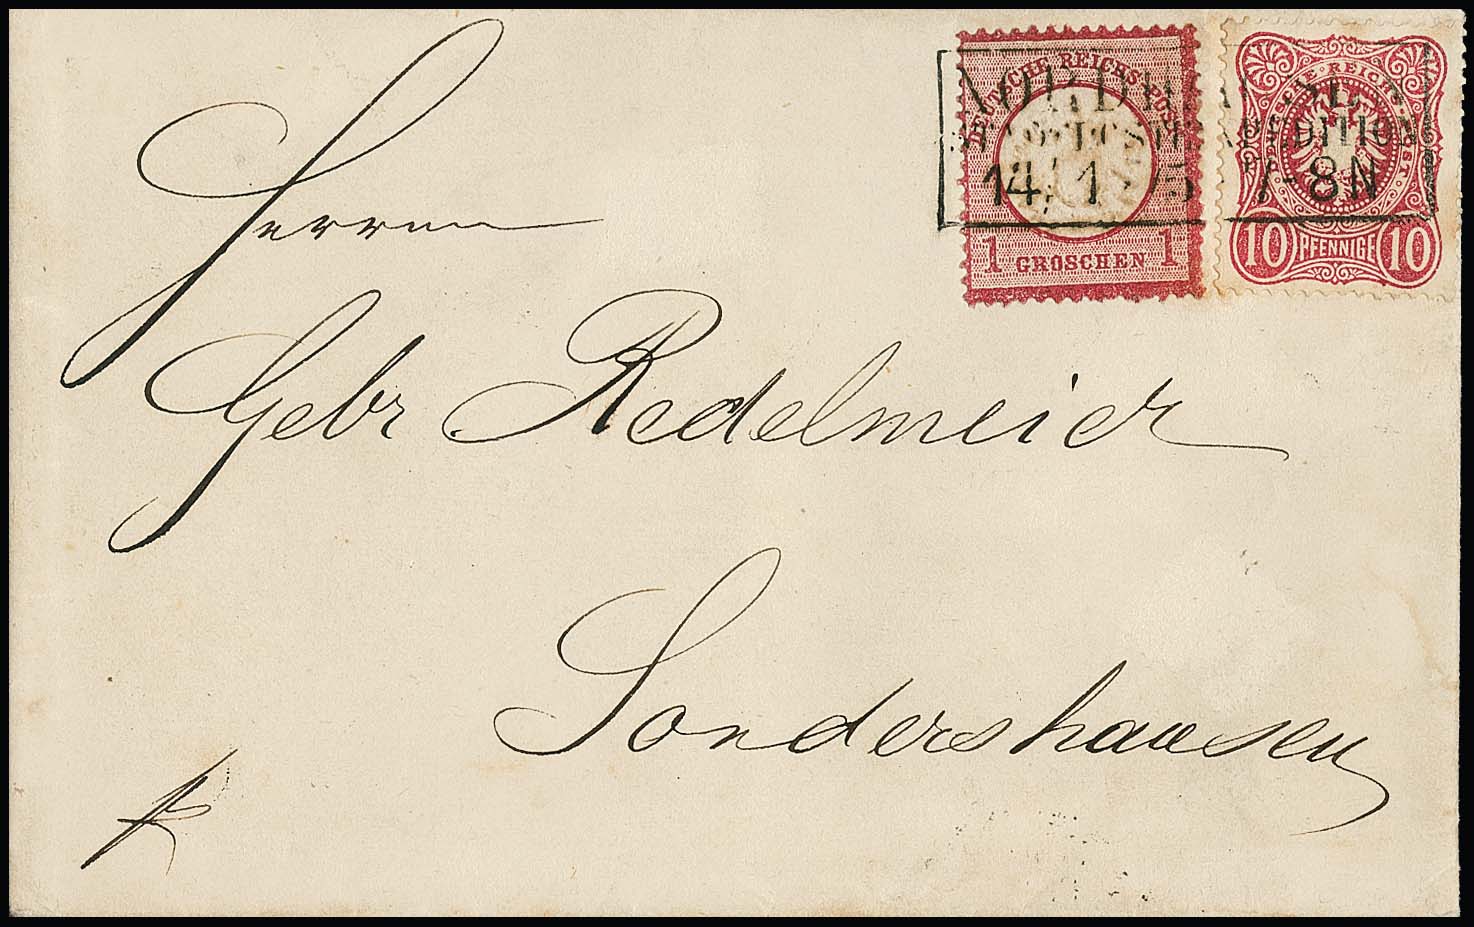 DEUTSCHE REICHS-POST
1 GROSCHEN 1
DEUTSCHE REICHS-POST
10 PFENNIGE 10
NORDHAUSEN
POST-EXPEDITION
14 1 75 7-8N
Herren
Gebr Redelmeier
Sondershausen